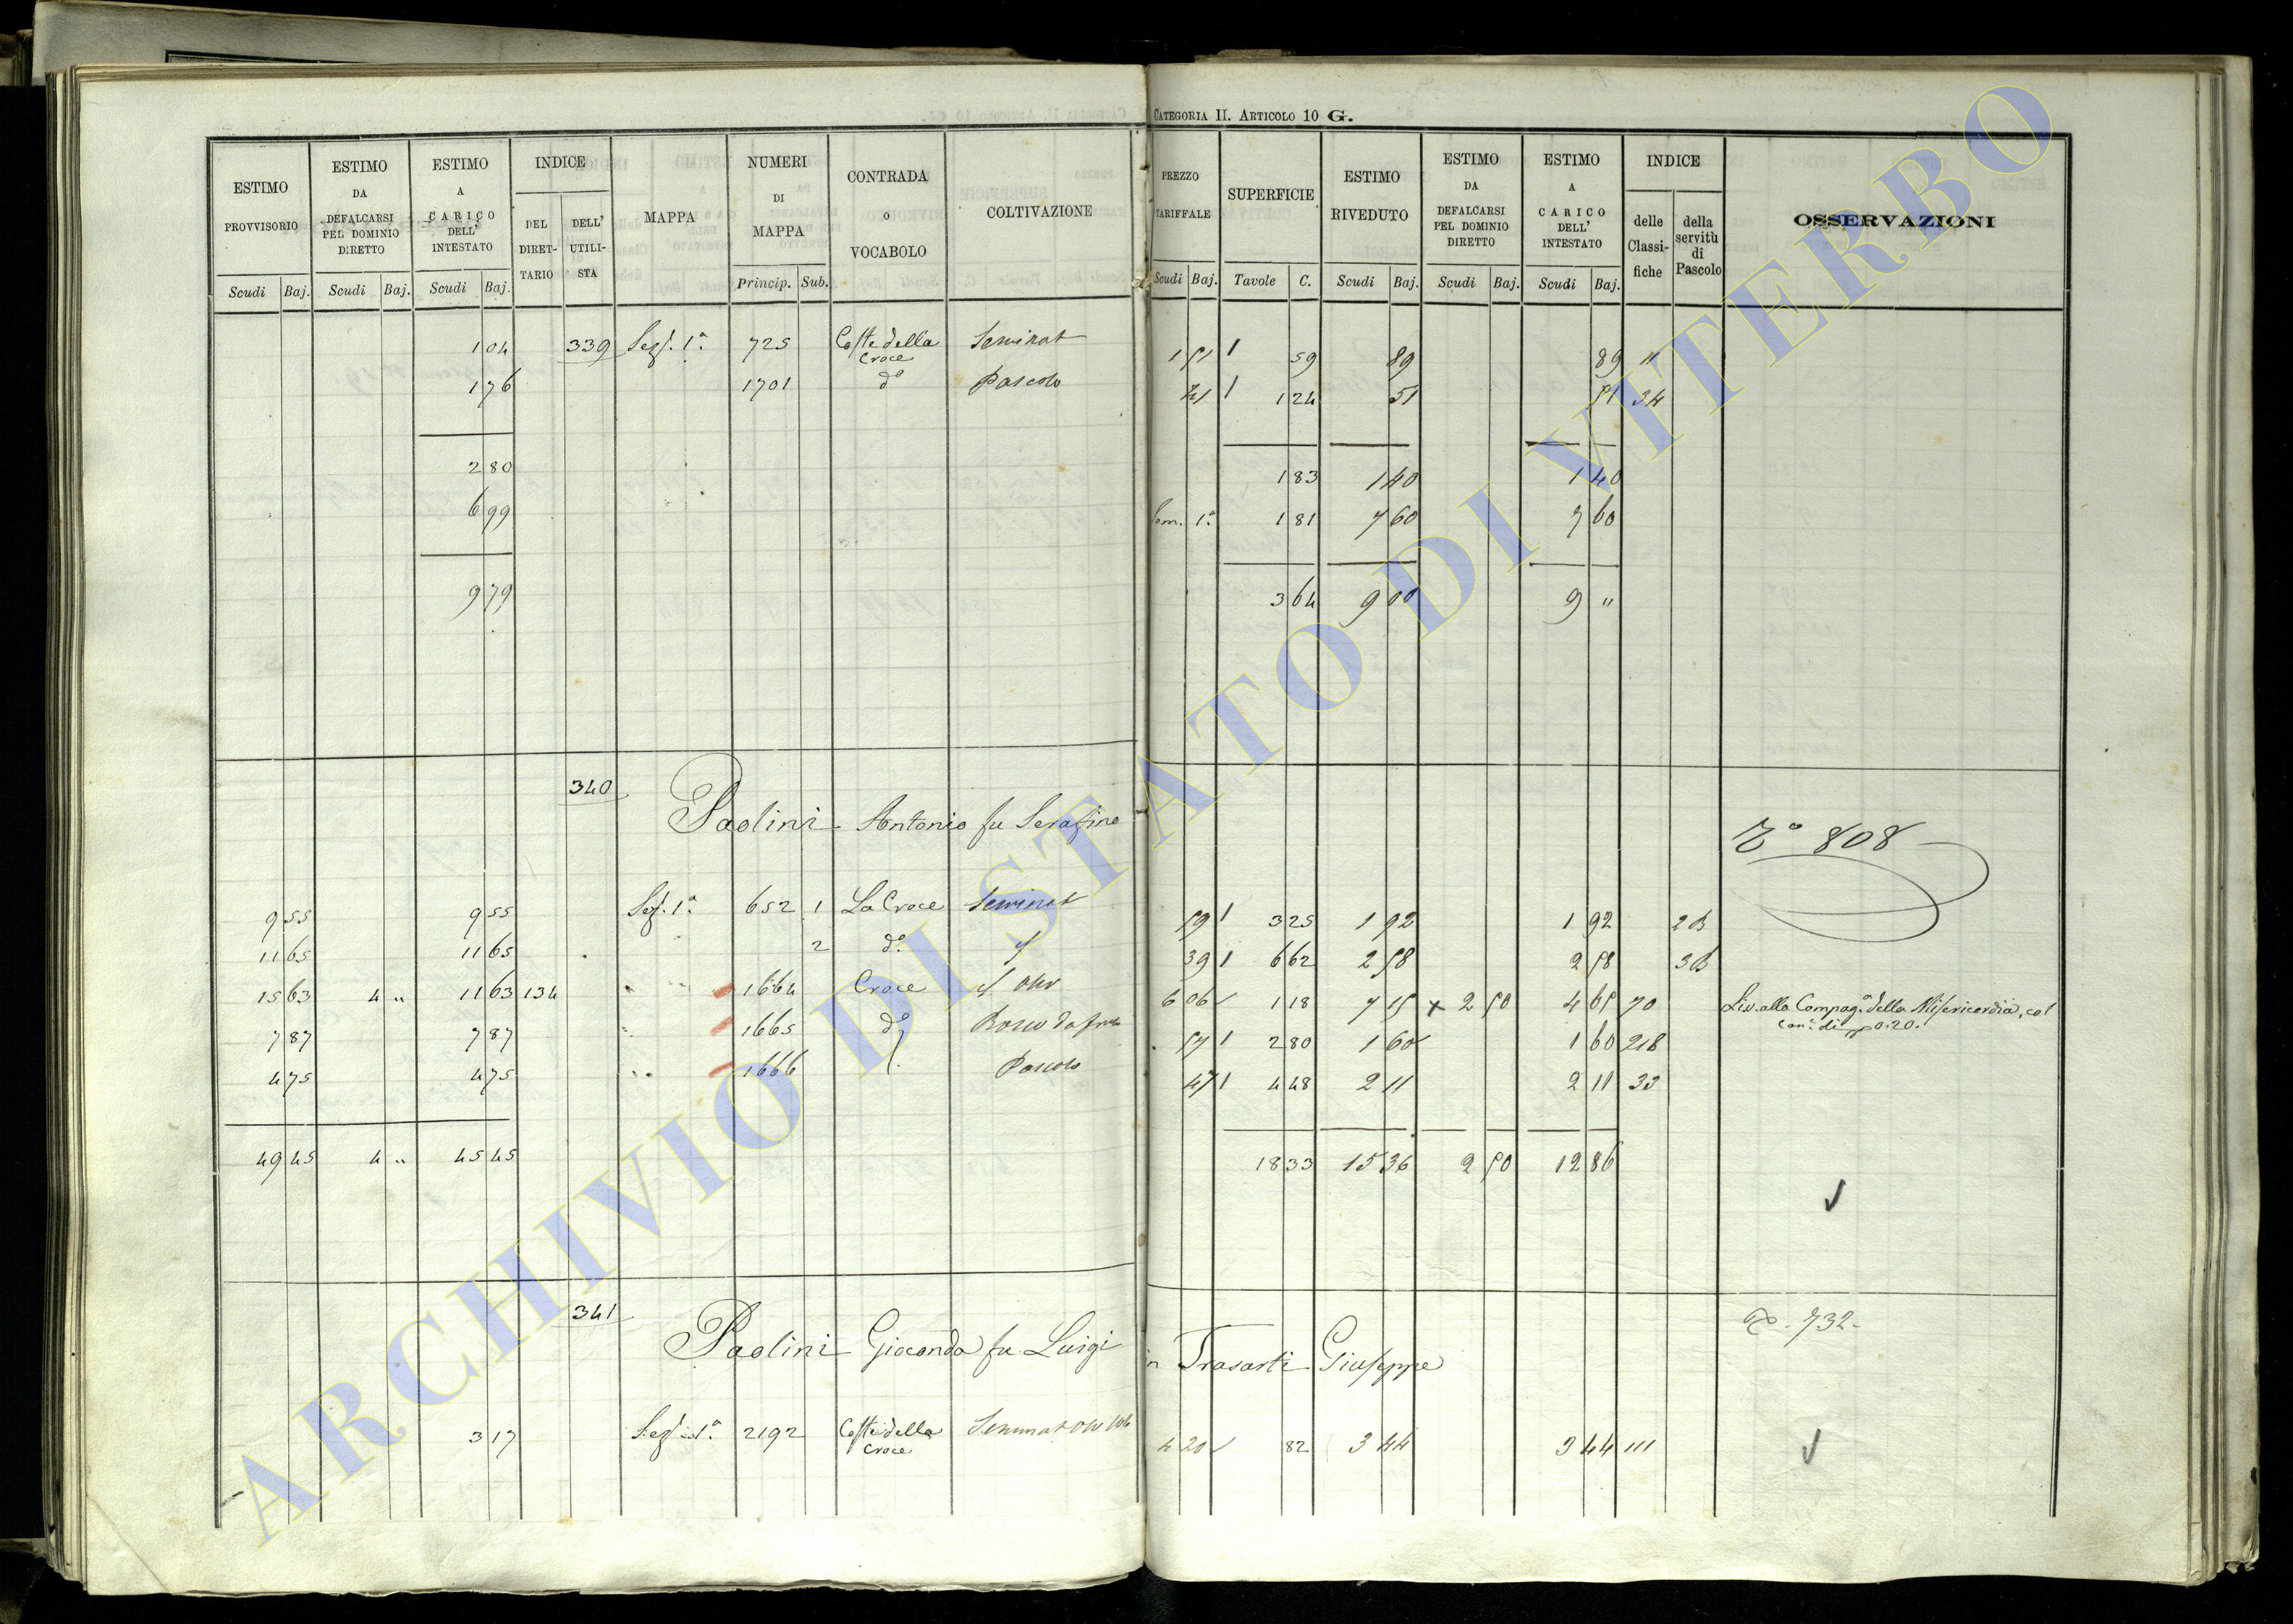 CATEGORIA II. ARTICOLO 10 G.
ESTIMO PROVVISORIO
ESTIMO DA DEFALCARSI PEL DOMINIO DIRETTO
ESTIMO A CARICO DELL' INTESTATO
INDICE
DEL DIRET-TARIO
DELL' UTILI-STA
MAPPA
NUMERI DI MAPPA
CONTRADA O VOCABOLO
COLTIVAZIONE
PREZZO TARIFFALE
SUPERFICIE
ESTIMO RIVEDUTO
ESTIMO DA DEFALCARSI PEL DOMINIO DIRETTO
ESTIMO A CARICO DELL' INTESTATO
INDICE
delle Classi-fiche
della servitù di Pascolo
OSSERVAZIONI
Scudi Baj. Scudi Baj. Scudi Baj. Princip. Sub. Scudi Baj. Tavole C. Scudi Baj. Scudi Baj. Scudi Baj.
1 04 339 Sez. 1ª 725 Coste della Croce Seminat 1 51 59 89 89 11
1 76 1701 dº Pascolo 41 1 24 51 51 34
2 80 1 83 1 40 1 40
6 99 1ª 1 81 7 60 7 60
9 79 3 64 9 00 9 "
340 Paolini Antonio fu Serafino
808
9 55 9 55 Sez. 1ª 652 1 La Croce Seminat 59 3 25 1 92 1 92 2 B
11 65 11 65 2 dº 39 6 62 2 58 2 58 3 B
15 63 4 " 11 63 134 " 1664 Croce 6 06 1 18 7 15 + 2 50 4 65 70 Liv. alla Compagª della Misericordia, col
can. di 0.20.
7 87 7 87 " 1665 dº Bosco da 57 2 80 1 60 1 60 218
4 75 4 75 " 1666 Pascolo 47 4 48 2 11 2 11 33
49 45 4 " 45 45 18 33 15 36 2 50 12 86
341 Paolini Gioconda fu Luigi in Trasarti Giuseppe
732
3 17 Sez. 1ª 2192 Coste della Croce 4 20 82 3 44 3 44 111
ARCHIVIO DI STATO DI VITERBO